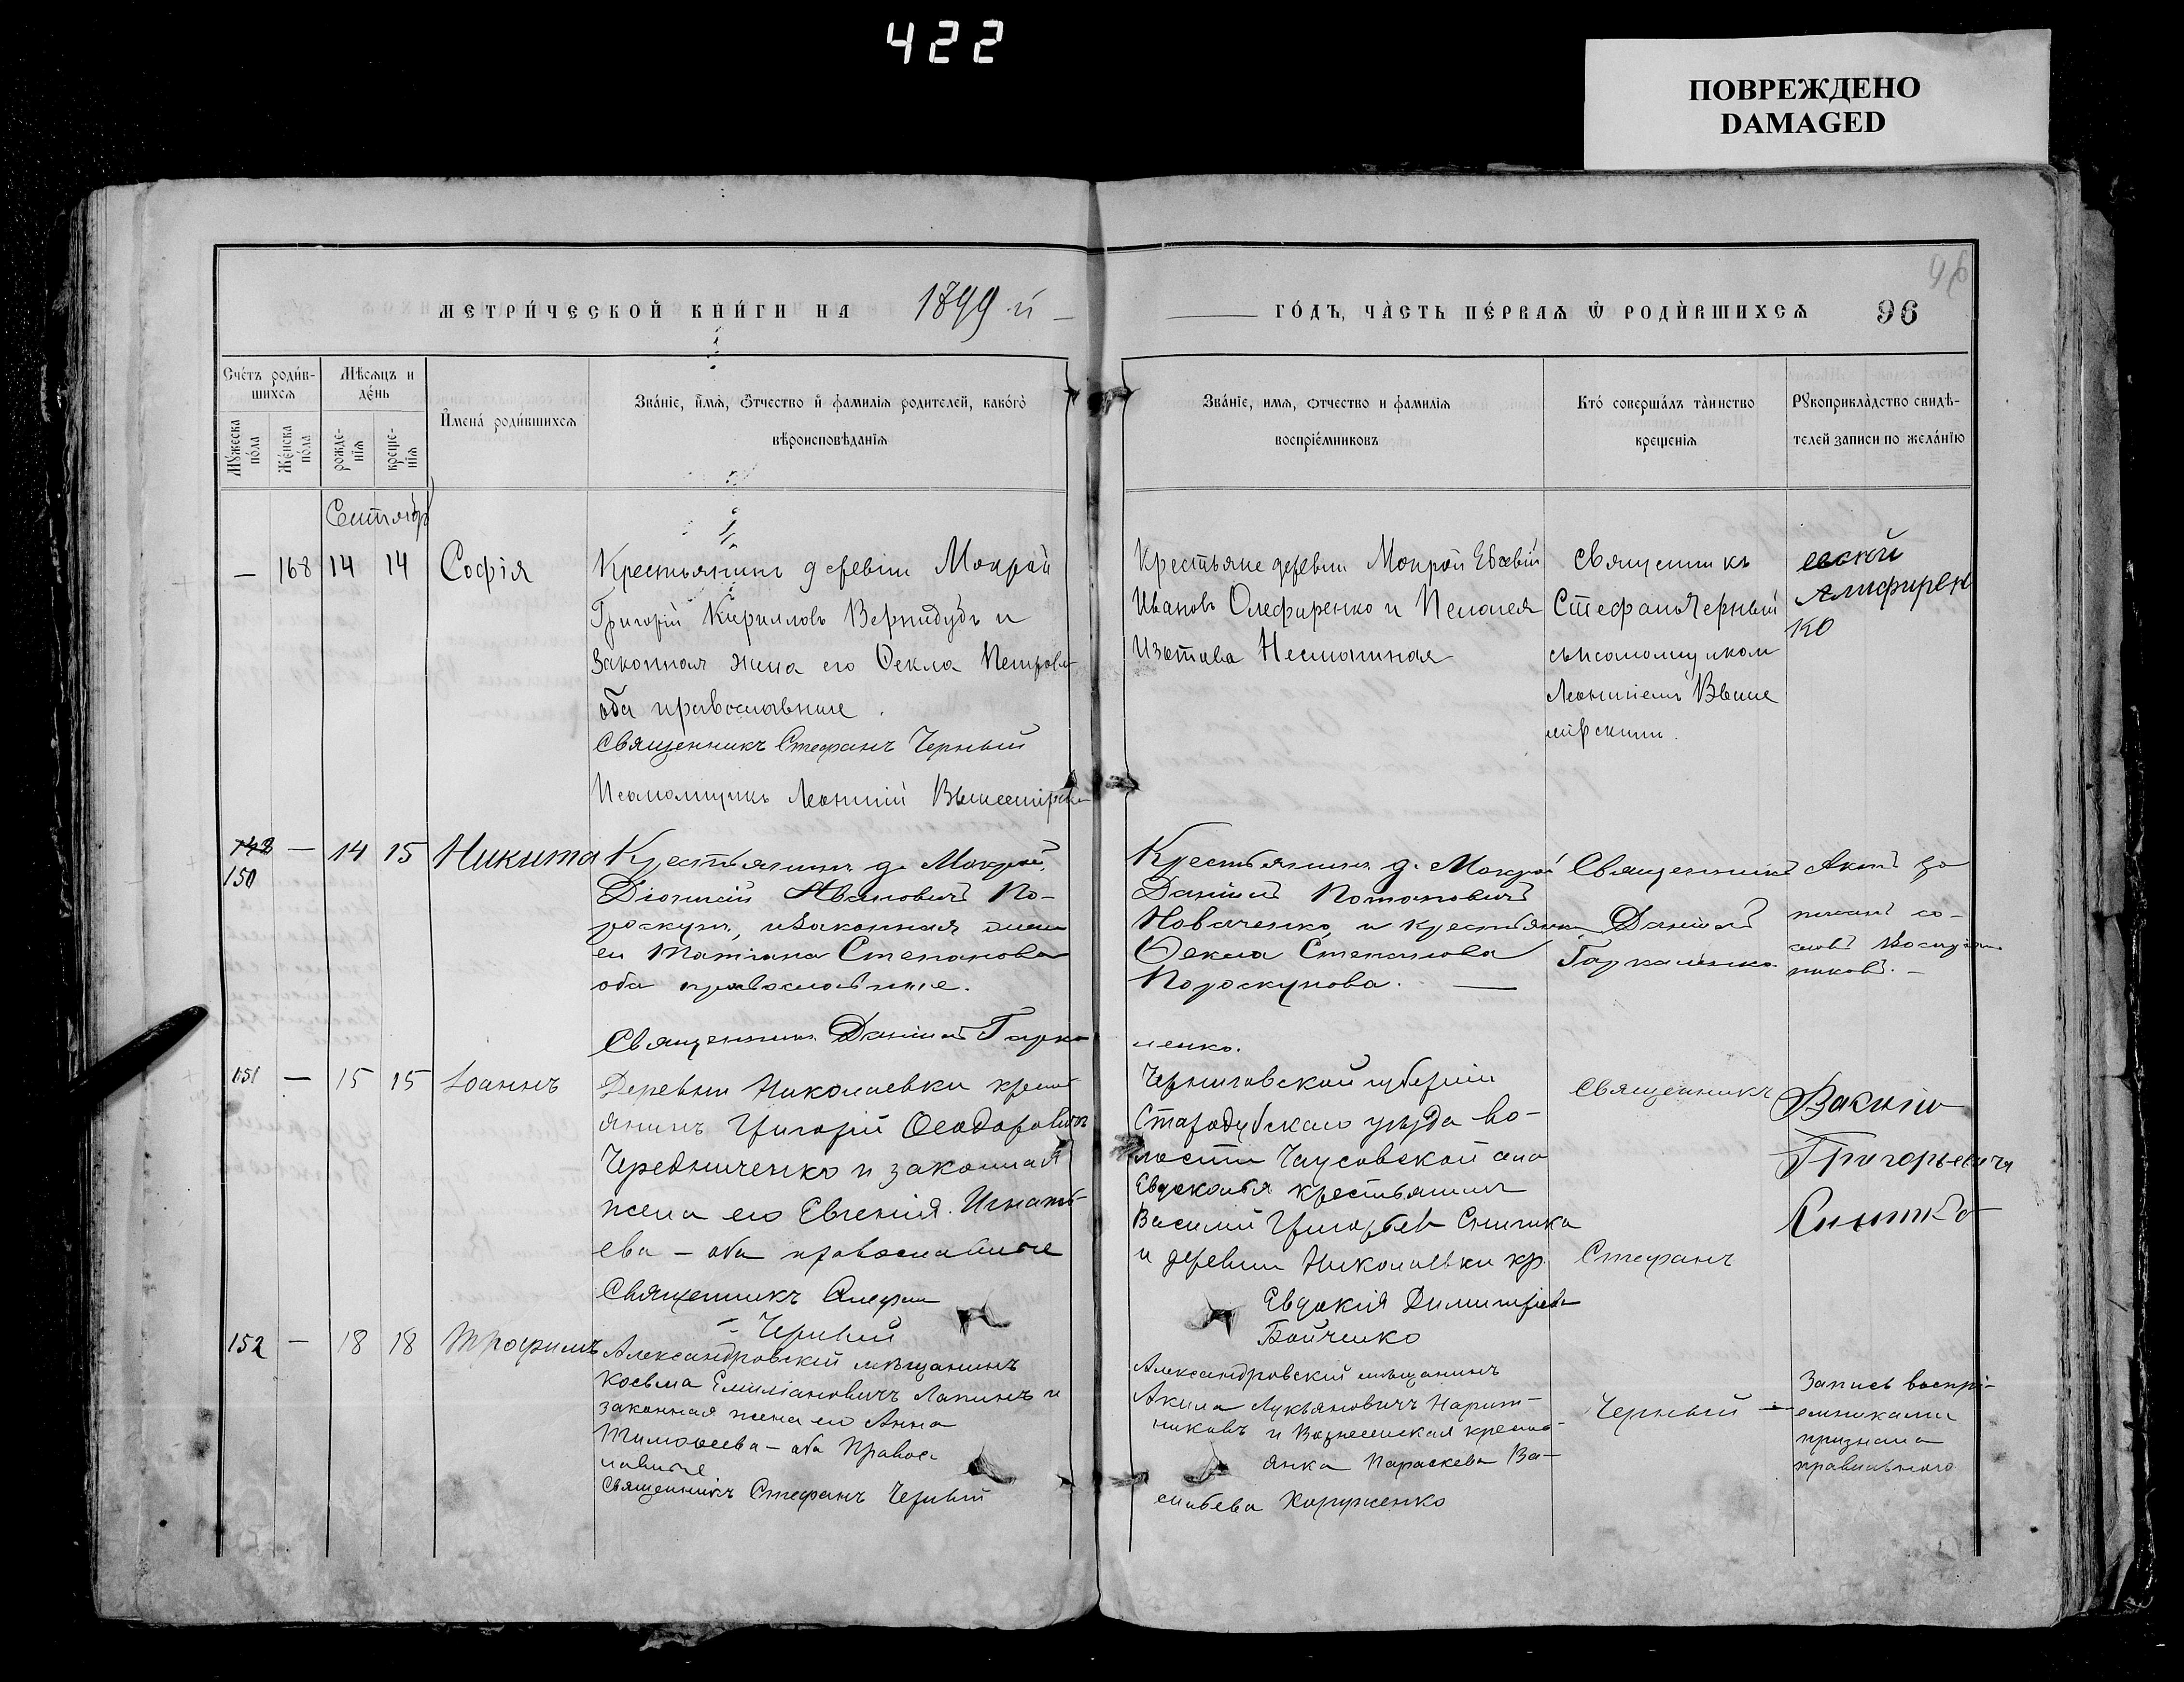 422
ПОВРЕЖДЕНО
DAMAGED
96
МЕТРИ́ЧЕСКОЙ КНИ́ГИ НА 1899 й
ГО́ДЪ, ЧА̀СТЬ ПЕ́РВАѦ Ѿ РОДИ́ВШИХСѦ 96
Сче́тъ роди́в-
шихсѧ
Мѣ́сѧцъ и
де́нь
Мꙋ́жеска
по́ла
Же́нска
по́ла
рожде-
нїѧ
креще-
нїѧ
И҆мена̀ роди́вшихсѧ
Зва́нїе, и҆́мѧ, ѻ҆́тчество и҆ фамилїѧ родителей, како́гѡ
вѣроисповѣ́данїѧ
Зва́нїе, имѧ, ѻтчество и фамилїѧ
воспрїе́мниковъ
Кто́ соверша́лъ та̀инство
крещенїѧ
Рꙋкоприкла̀дство свидѣ̀-
телей записи по жела́нїю
Сентябр
— 168 14 14 Софія
Крестьянинъ деревни Мокрой
Григорій Кирилловъ Вернидубъ и
законная жена его Ѳекла Петрова
оба православные.
Священникъ Стефанъ Черный
Псаломщикъ Леонтій Вышемірскі
Крестьяне деревни Мокрой Евсевій
Ивановъ Олефиренко и Пелагея
Изотова Несмачная
Священникъ
Стефанъ Черный
съ псаломщиком
Леонтіемъ Выше
мірскимъ.
евсей
Алифирен
ко
142 — 14 15 Никита
150
Крестьянинъ д. Мокрой,
Діонисій Ивановичъ По-
роскунъ, и законная жена
его Татіана Степанова
оба православные.
Священник Даніилъ Гарка
Крестьянинъ д. Мокрой
Даніилъ Потаповичъ
Новаченко, и крестьянка
Ѳекла Степанова
Пороскунова. —
ленко.
Священникъ
Даніилъ
Гаркаленко.
Актъ за
писанъ со-
словъ Воспріем
никовъ. —
151 — 15 15 Іоаннъ
Деревни Николаевки крест
янинъ Григорій Ѳеодоровичъ
Чередниченко и законная
жена его Евгенія Игнать-
ева — оба православные
Священникъ Стефан
Черный
Черниговской губерніи
Стародубскаго уѣзда во-
лости Чаусовской села
крестьянинъ
Василій Григорьев Синитка
и деревни Николаевки кр.
Евдокія Димитріева
Бойченко
Священникъ
Стефанъ
Григорьевичя
152 — 18 18 Трофимъ
Александровскій мѣщанинъ
Косьма Емиліановичъ Лапинъ и
законная жена его Анна
Тимоѳеева — оба Правос
лавные
Священникъ Стефанъ Черный
Александровскій мѣщанинъ
Акила Лукьяновичъ Нарит-
никовъ и Вознесенская крест-
янка Параскева Ва-
сильева Хоруженко
Черный —
Запись воспрі-
емниками
признана
правильною